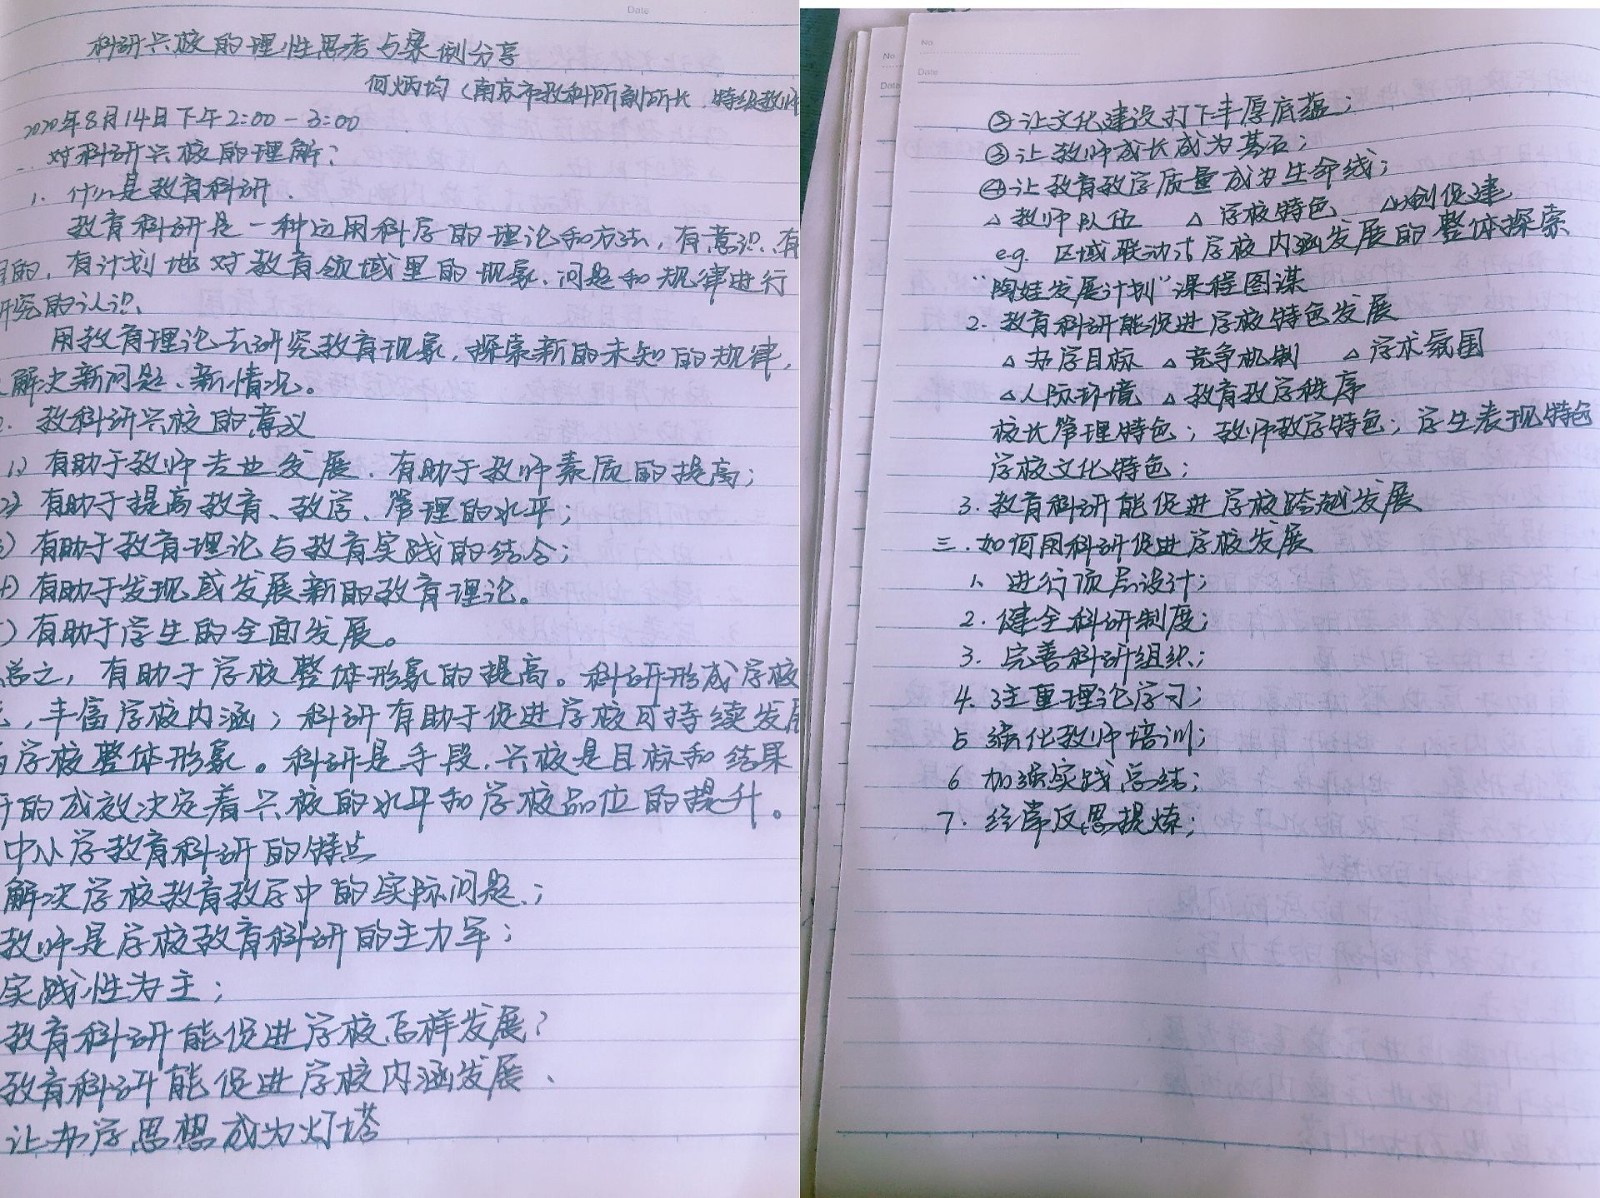 Date
科研兴校的理性思考与案例分享
何炳均（南京市教科所副所长 特级教师
2020年8月14日下午2:00-3:00
一、对科研兴校的理解：
1. 什么是教育科研.
教育科研是一种运用科学的理论和方法，有意识、有
目的，有计划地对教育领域里的现象、问题和规律进行
研究的认识.
用教育理论去研究教育现象，探索新的未知的规律，
解决新问题、新情况。
2. 教科研兴校的意义
1) 有助于教师专业发展，有助于教师素质的提高；
2) 有助于提高教育、教学、管理的水平；
3) 有助于教育理论与教育实践的结合；
4) 有助于发现或发展新的教育理论。
5) 有助于学生的全面发展。
总之，有助于学校整体形象的提高。科研形成学校
，丰富学校内涵；科研有助于促进学校可持续发展
学校整体形象。科研是手段，兴校是目标和结果
的成效决定着兴校的水平和学校品位的提升。
中小学教育科研的特点
解决学校教育教学中的实际问题；
教师是学校教育科研的主力军；
实践性为主；
教育科研能促进学校怎样发展？
教育科研能促进学校内涵发展、
让办学思想成为灯塔
No.
Date
No.
Date
②让文化建设打下丰厚底蕴；
③让教师成长成为基石；
④让教育教学质量成为生命线；
△教师队伍 △学校特色 △以创促建
e.g. 区域联动 学校内涵发展的整体探索
“陶娃发展计划”课程图谋
2. 教育科研能促进学校特色发展
△办学目标 △竞争机制 △学术氛围
△人际环境 △教育教学秩序
校长管理特色；教师教学特色；学生表现特色
学校文化特色；
3. 教育科研能促进学校跨越发展
三.如何用科研促进学校发展
1、进行顶层设计；
2. 健全科研制度；
3. 完善科研组织；
4. 注重理论学习；
5 强化教师培训；
6 加强实践总结；
7. 经常反思提炼；